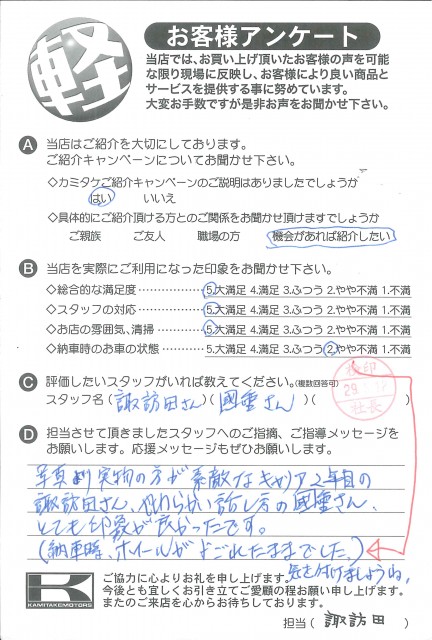 軽
お客様アンケート
当店では、お買い上げ頂いたお客様の声を可能
な限り現場に反映し、お客様により良い商品と
サービスを提供する事に努めています。
大変お手数ですが是非お声をお聞かせ下さい。
A 当店はご紹介を大切にしております。
ご紹介キャンペーンについてお聞かせ下さい。
◇カミタケご紹介キャンペーンのご説明はありましたでしょうか
はい いいえ
◇具体的にご紹介頂ける方とのご関係をお聞かせ頂けますでしょうか
ご親族 ご友人 職場の方 機会があれば紹介したい
B 当店を実際にご利用になった印象をお聞かせ下さい。
◇総合的な満足度 5.大満足 4.満足 3.ふつう 2.やや不満 1.不満
◇スタッフの対応 5.大満足 4.満足 3.ふつう 2.やや不満 1.不満
◇お店の雰囲気、清掃 5.大満足 4.満足 3.ふつう 2.やや不満 1.不満
◇納車時のお車の状態 5.大満足 4.満足 3.ふつう 2.やや不満 1.不満
C 評価したいスタッフがいれば教えてください。(複数回答可)
スタッフ名(諏訪田さん)(國重さん)( )
検印
29
社長
D 担当させて頂きましたスタッフへのご指摘、ご指導メッセージを
お願いします。応援メッセージもぜひお願いします。
写真より実物の方が素敵なキャリア2年目の
諏訪田さん、やわらかい話し方の國重さん、
とても印象が良かったです。
(納車時、ホイールがよごれたままでした。)
気を付けましょうね。
K
KAMITAKEMOTORS
ご協力に心よりお礼を申し上げます。
今後とも宜しくお引き立てご愛顧の程お願い申し上げます。
またのご来店を心からお待ちしております。
担当(諏訪田)